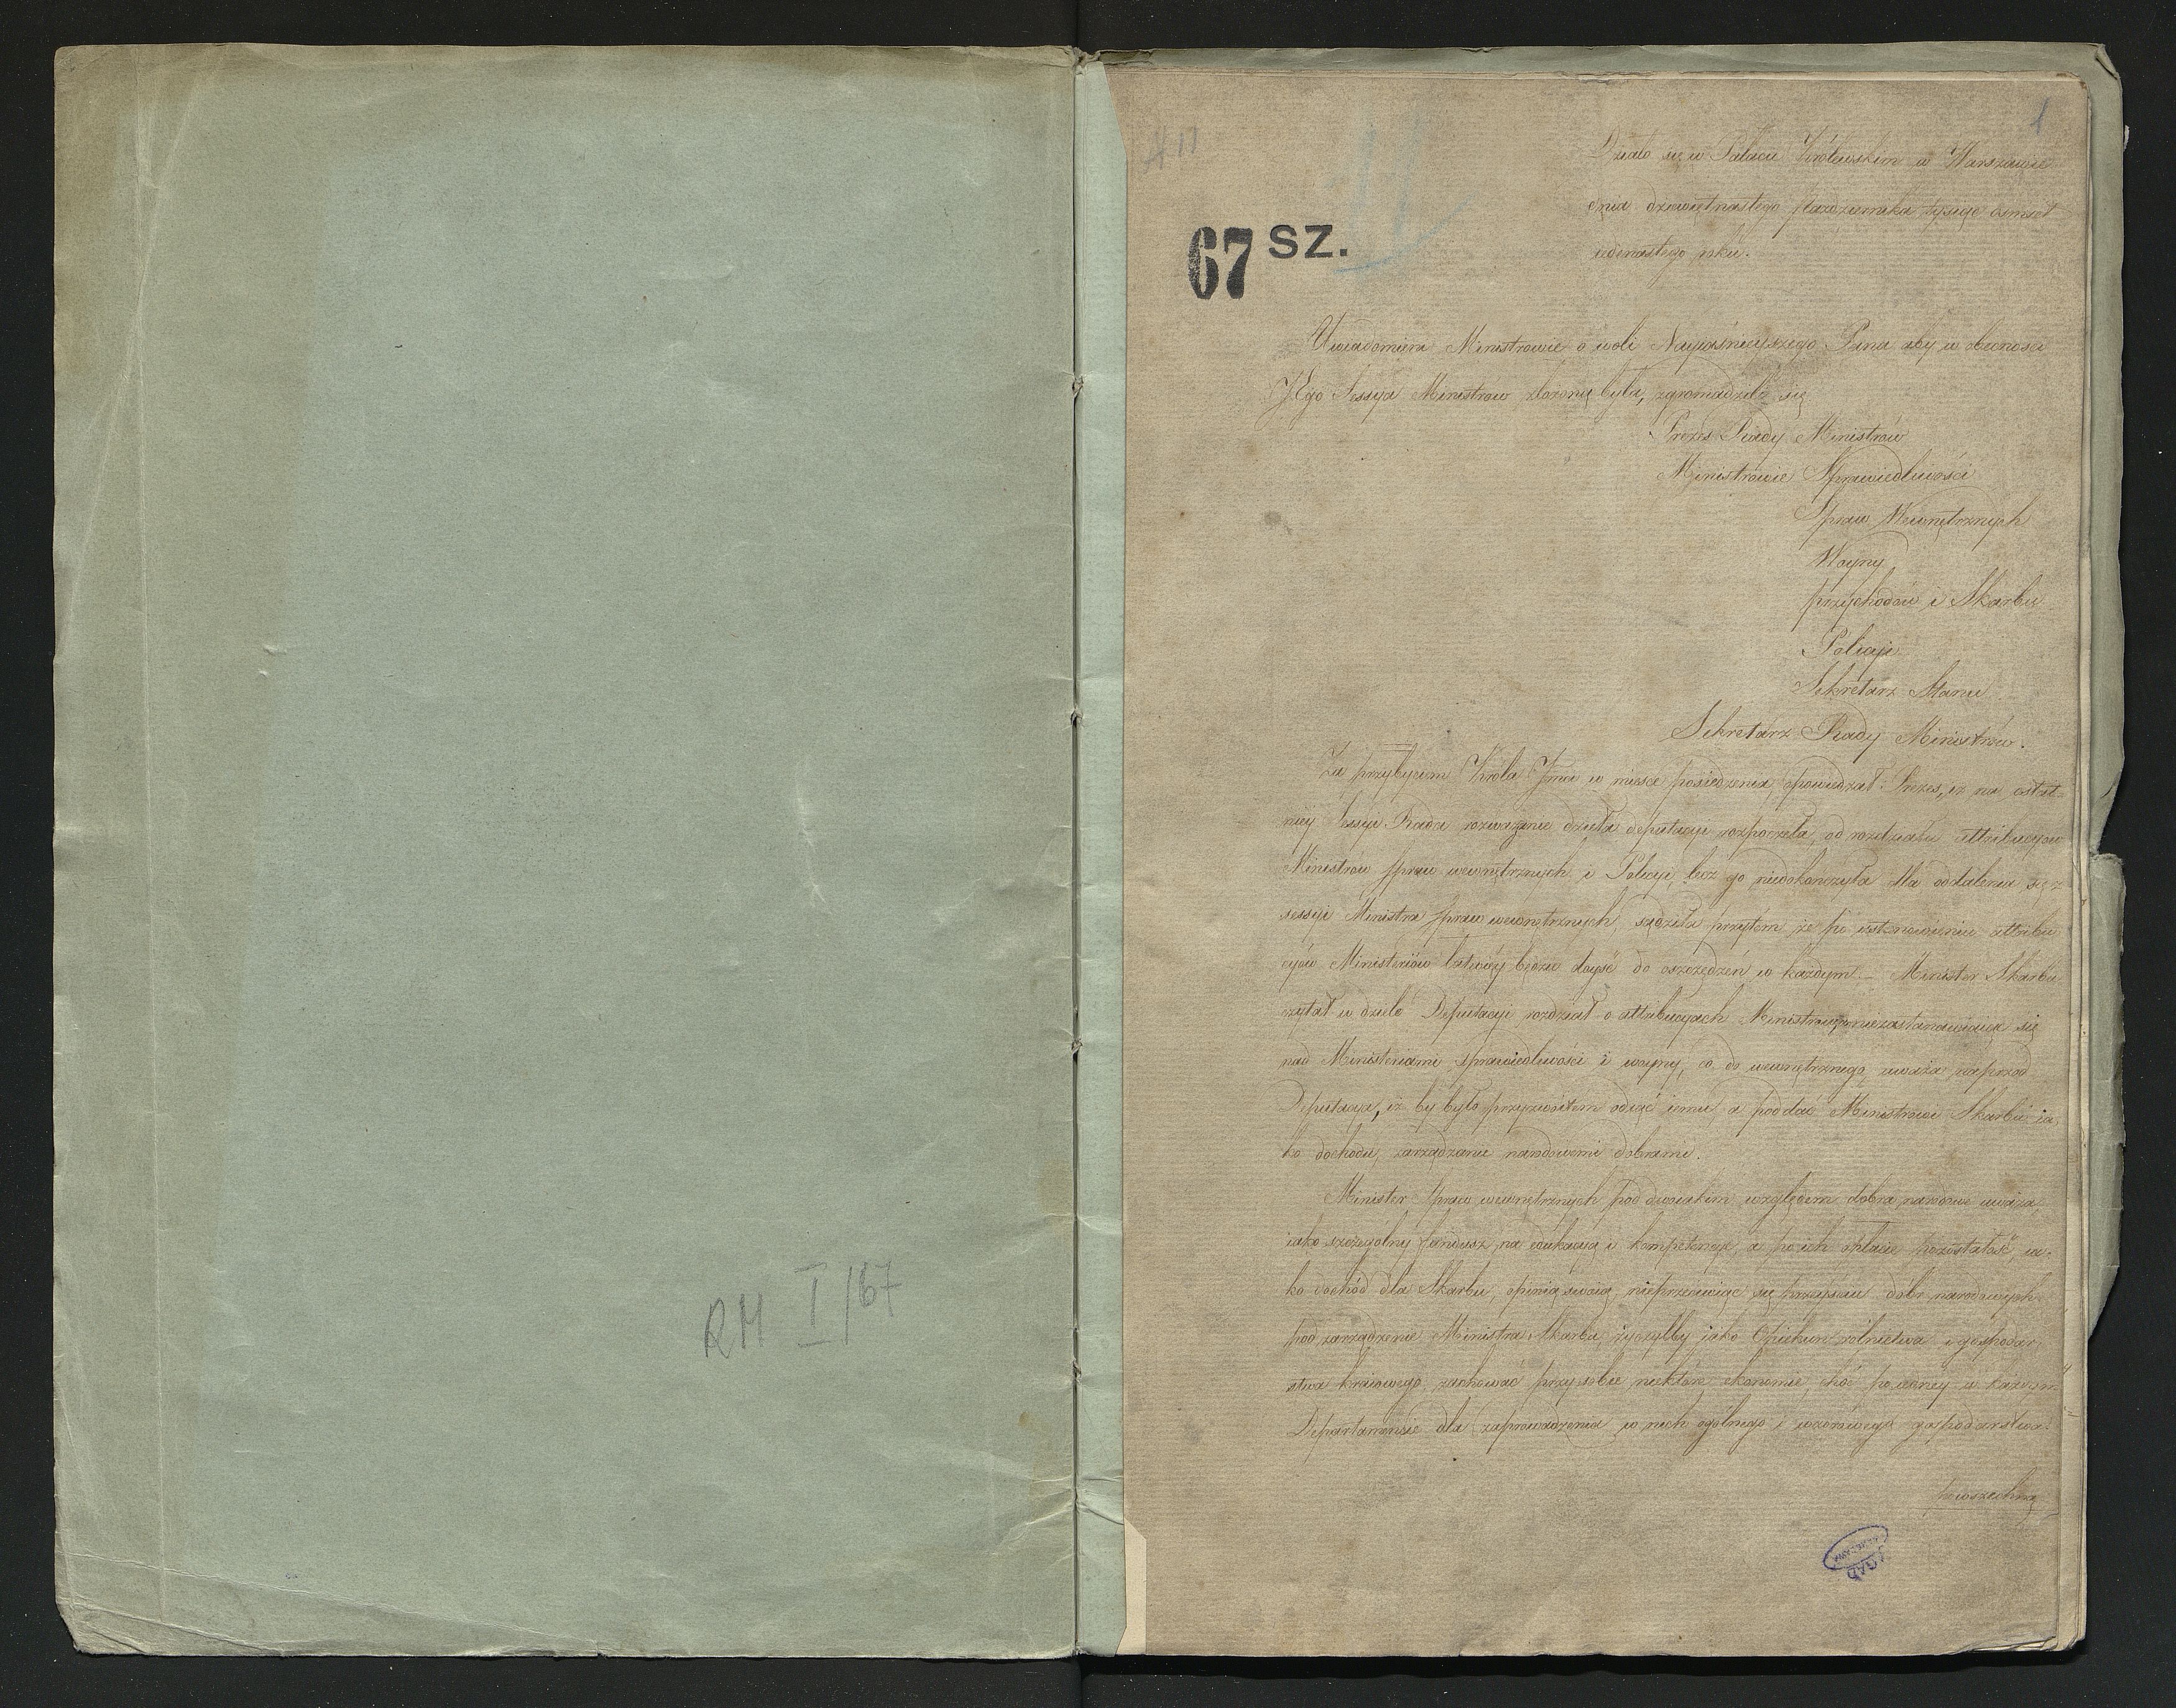 RM I/67
A 11
1
67 SZ.
Działo się w Pałacu Królewskim w Warszawie
dnia dziewiętnastego października tysiąc osmset
iedenastego roku.
Uwiadomieni Ministrowie o woli Nayiaśnieyszego Pana aby w obecności
JEgo Sessya Ministrow złożoną była, zgromadzili się
Prezes Rady Ministrów
Ministrowie Sprawiedliwości
Spraw Wewnętrznych
Woyny
przychodów i Skarbu
Policyi
Sekretarz Stanu
Sekretarz Rady Ministrów.
Za przybyciem Króla Jmci w miesce posiedzenia, opowiedział Prezes, iż na ostat-
niey Sessyi Rada rozważanie dzieła deputacyi rozpoczęła, od rozdziału attribucyow
Ministrów Spraw wewnętrznych i Policyi, lecz go niedokończyła dla oddalenia się z
sessyi Ministra Spraw wewnętrznych, sądziła przytém że po ustanowieniu attribu
cyów Ministeriów łatwiéy będzie doyść do oszczędzeń w każdym. – Minister Skarbu
czytał w dziele Deputacyi rozdział o attribucyach Ministrów niezastanawiaiąc się
nad Ministeriami sprawiedliwości i woyny, co do wewnętrznego uważa naprzód
Deputacya, iż by było przyzwoitem odiąć iemu, a poddać Ministrowi Skarbu ia-
ko dochodu, zarządzanie narodowemi dobrami.
Minister Spraw wewnętrznych pod dwoiakim względem dobra narodowe uważa,
iako szczególny fundusz na edukacyą i kompetencye, a po ich opłacie pozostałość, ia-
ko dochód dla Skarbu, opinią swoią nieprzeciwiąc się przeyściu dóbr narodowych
pod zarządzenie Ministra Skarbu, życzyłby iako Opiekun rolnictwa i gospodar-
stwa kraiowego zachować przy sobie niektóre ekonomie, choć po iedney w każdym
Departamencie dla zaprowadzenia w nich ogólnego i wzorowego gospodarstwa.
powszechną
AGAD
WARSZAWA